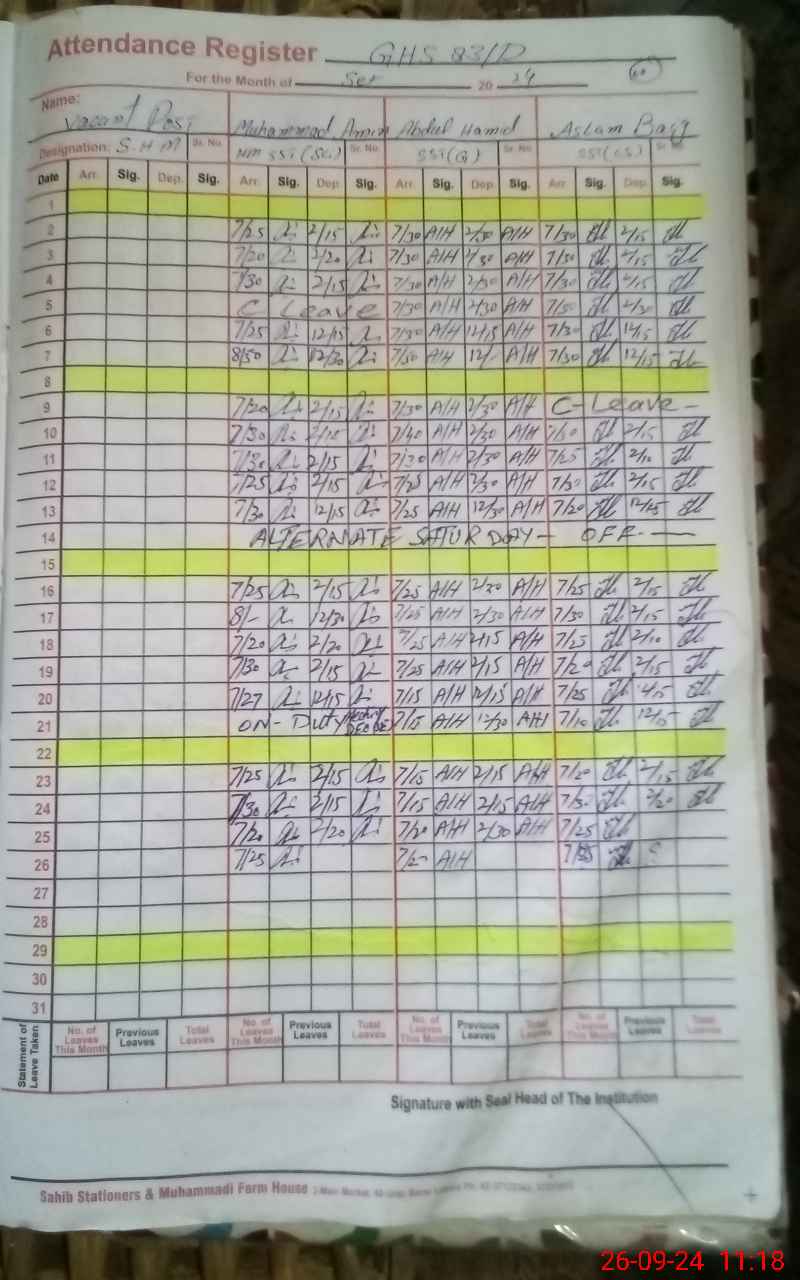 Attendance Register GHS 83/D
For the Month of Sep 20 24
Name: Vacant Post Muhammad Amin Abdul Hamid Aslam Bagg
Designation: S.H.M Sr. No. SST(Sc) Sr. No. SST(G) Sr. No. SST(CS) Sr. No.
Date Arr. Sig. Dep. Sig. Arr. Sig. Dep. Sig. Arr. Sig. Dep. Sig. Arr. Sig. Dep. Sig.
1
2 7/25 2/15 7/30 A/H 2/30 A/H 7/30 2/15
3 7/20 2/20 7/30 A/H 2/30 A/H 7/30 2/15
4 7/30 2/15 7/30 A/H 2/30 A/H 7/30 2/15
5 C Leave 7/30 A/H 2/30 A/H 7/30 2/30
6 7/25 12/15 7/30 A/H 12/15 A/H 7/30 12/15
7 8/50 12/30 7/50 A/H 12/- A/H 7/30 12/15
8
9 7/20 2/15 7/30 A/H 2/30 A/H C-Leave-
10 7/30 2/15 7/40 A/H 2/30 A/H 2/15
11 7/30 2/15 7/30 A/H 2/30 A/H 7/25 2/10
12 7/25 2/15 7/25 A/H 2/30 A/H 2/15
13 7/30 12/15 7/25 A/H 12/30 A/H 7/20 12/15
14 ALTERNATE SATURDAY- OFF-
15
16 7/25 2/15 7/25 A/H 2/30 A/H 7/25 2/15
17 8/- 12/30 7/25 A/H 2/30 A/H 7/30 2/15
18 7/20 2/20 7/25 A/H 2/15 A/H 7/25 2/10
19 7/30 2/15 7/25 A/H 2/15 A/H 7/20 2/15
20 7/27 12/15 7/15 A/H 12/15 A/H 7/25 12/15
21 ON-Duty 7/15 A/H 12/30 A/H 7/10 12/15
22
23 7/25 2/15 7/15 A/H 2/15 A/H 7/20 2/15
24 7/30 2/15 7/15 A/H 2/15 A/H 7/30 2/20
25 7/20 2/20 7/20 A/H 2/30 A/H 7/25
26 7/25 A/H
27
28
29
30
31
Statement of Leave Taken No. of Leaves This Month Previous Leaves Total Leaves No. of Leaves This Month Previous Leaves Total Leaves No. of Leaves This Month Previous Leaves Total Leaves No. of Leaves This Month Previous Leaves Total Leaves
Signature with Seal Head of The Institution
Sahib Stationers & Muhammadi Form House
26-09-24 11:18